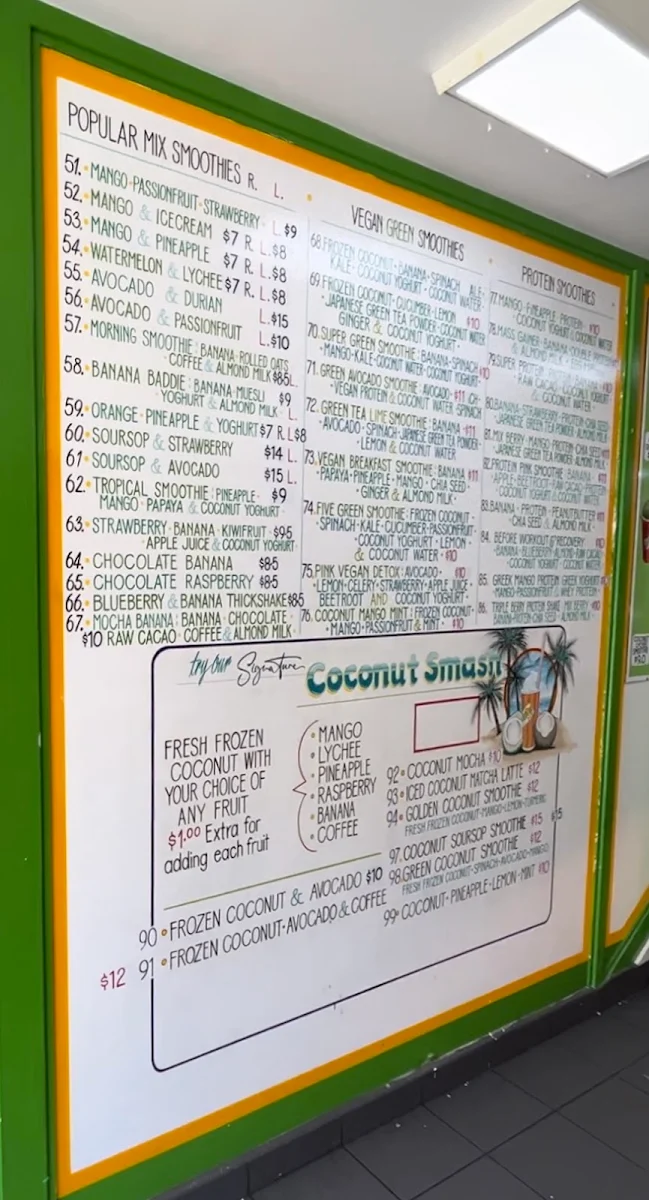 POPULAR MIX SMOOTHIES R. L.
51. MANGO·PASSIONFRUIT·STRAWBERRY L. $9
52. MANGO & ICECREAM $7 R. L. $8
53. MANGO & PINEAPPLE $7 R. L. $8
54. WATERMELON & LYCHEE $7 R. L. $8
55. AVOCADO & DURIAN L. $15
56. AVOCADO & PASSIONFRUIT L. $10
57. MORNING SMOOTHIE: BANANA·ROLLED OATS
COFFEE & ALMOND MILK
58. BANANA BADDIE: BANANA·MUESLI $9
YOGHURT & ALMOND MILK L.
59. ORANGE·PINEAPPLE & YOGHURT $7 R. L $8
60. SOURSOP & STRAWBERRY $14 L.
61 SOURSOP & AVOCADO $15 L.
62. TROPICAL SMOOTHIE: PINEAPPLE· $9
MANGO·PAPAYA & COCONUT YOGHURT
63. STRAWBERRY·BANANA·KIWIFRUIT·$9.5
APPLE JUICE & COCONUT YOGHURT
64. CHOCOLATE BANANA $8.5
65. CHOCOLATE RASPBERRY $8.5
66. BLUEBERRY & BANANA THICKSHAKE $8.5
67. MOCHA BANANA: BANANA·CHOCOLATE·
$10 RAW CACAO·COFFEE & ALMOND MILK
VEGAN GREEN SMOOTHIES
68. FROZEN COCONUT·BANANA·SPINACH
KALE·COCONUT YOGHURT·COCONUT WATER
69. FROZEN COCONUT·CUCUMBER·LEMON $10
JAPANESE GREEN TEA POWDER·COCONUT WATER
GINGER & COCONUT YOGHURT
70. SUPER GREEN SMOOTHIE: BANANA·SPINACH $10
·MANGO·KALE·COCONUT WATER·COCONUT YOGHURT·
71. GREEN AVOCADO SMOOTHIE: AVOCADO· $11
VEGAN PROTEIN & COCONUT WATER·SPINACH
72. GREEN TEA LIME SMOOTHIE: BANANA $11
·AVOCADO·SPINACH·JAPANESE GREEN TEA POWDER·
·LEMON & COCONUT WATER
73. VEGAN BREAKFAST SMOOTHIE: BANANA $11
·PAPAYA·PINEAPPLE·MANGO·CHIA SEED·
GINGER & ALMOND MILK·
74. FIVE GREEN SMOOTHIE: FROZEN COCONUT·
SPINACH·KALE·CUCUMBER·PASSIONFRUIT
·COCONUT YOGHURT·LEMON
& COCONUT WATER·$10
75. PINK VEGAN DETOX: AVOCADO· $10
·LEMON·CELERY·STRAWBERRY·APPLE JUICE·
BEETROOT AND COCONUT YOGHURT·
76. COCONUT MANGO MINT: FROZEN COCONUT·
·MANGO·PASSIONFRUIT & MINT·$10
PROTEIN SMOOTHIES
77. MANGO·PINEAPPLE PROTEIN· $10
COCONUT YOGHURT·COCONUT WATER
78. MASS GAINER·BANANA·DOUBLE PROTEIN
& ALMOND MILK
79. SUPER PROTEIN·BANANA·
RAW CACAO·COCONUT YOGHURT
& COCONUT WATER·
80. BANANA·STRAWBERRY·PROTEIN·CHIA SEED·
JAPANESE GREEN TEA·ALMOND MILK
81. MIX BERRY·MANGO·PROTEIN·CHIA SEED·
JAPANESE GREEN TEA POWDER·ALMOND MILK·
82. PROTEIN PINK SMOOTHIE: BANANA $11
·APPLE·BEETROOT·RAW CACAO
COCONUT YOGHURT & COCONUT WATER
83. BANANA·PROTEIN·PEANUTBUTTER $11
CHIA SEED & ALMOND MILK·
84. BEFORE WORKOUT & RECOVERY $10
·BANANA·BLUEBERRY·ALMOND·RAW CACAO
·COCONUT YOGHURT & ALMOND MILK
85. GREEK MANGO PROTEIN: GREEK YOGHURT
·MANGO·PASSIONFRUIT & WHEY PROTEIN·
86. TRIPLE BERRY PROTEIN SHAKE: MIX BERRY $10
BANANA·PROTEIN·CHIA SEED·ALMOND MILK
try our Signature Coconut Smash
FRESH FROZEN
COCONUT WITH
YOUR CHOICE OF
ANY FRUIT
$1.00 Extra for
adding each fruit
· MANGO
· LYCHEE
· PINEAPPLE
· RASPBERRY
· BANANA
· COFFEE
90 · FROZEN COCONUT & AVOCADO $10
$12 91 · FROZEN COCONUT·AVOCADO & COFFEE
92 · COCONUT MOCHA $10
93 · ICED COCONUT MATCHA LATTE $12
94 · GOLDEN COCONUT SMOOTHIE $12
FRESH FROZEN COCONUT·MANGO·LEMON·TURMERIC
97. COCONUT SOURSOP SMOOTHIE $15 $15
98. GREEN COCONUT SMOOTHIE $12
FRESH FROZEN COCONUT·SPINACH·AVOCADO·MANGO
99 · COCONUT·PINEAPPLE·LEMON·MINT $10